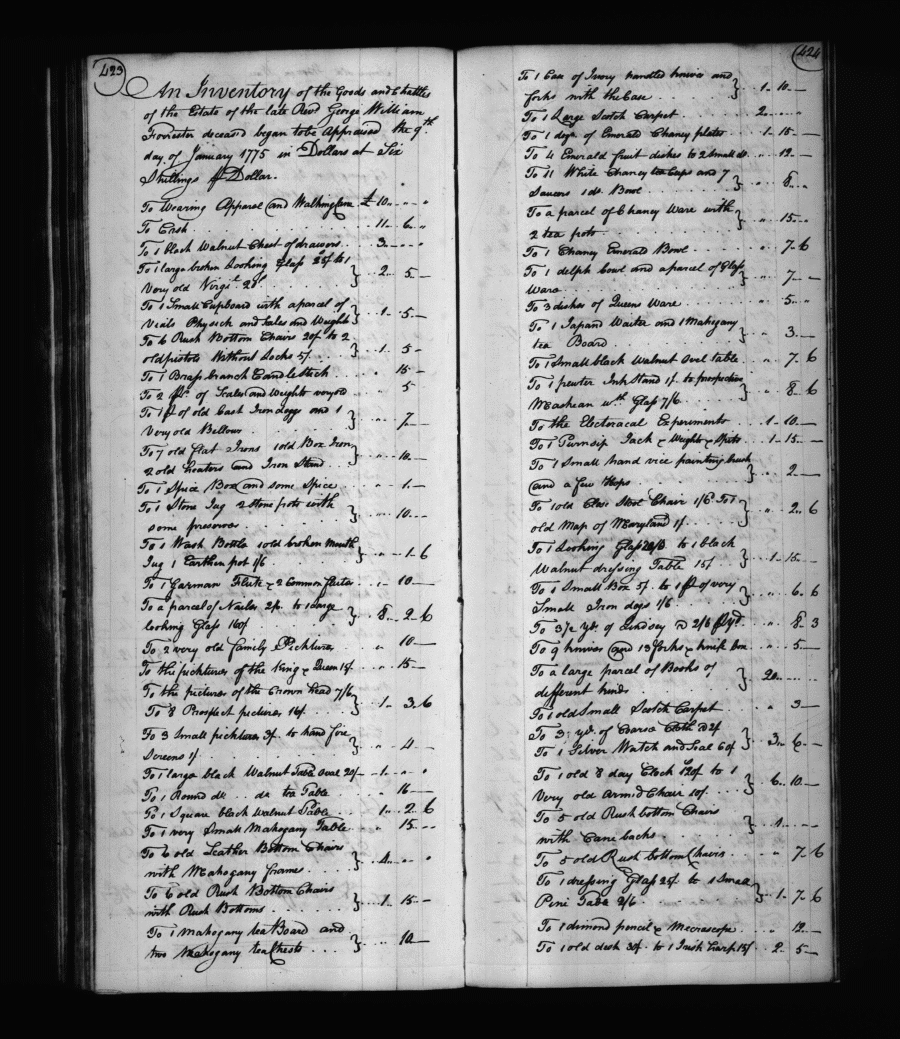 423
An Inventory of the Goods and Chattles
of the Estate of the late Revd George William
Forrester deceased began to be Appraised the 9th
day of January 1775 in Dollars at Six
Shillings Dollar.
To Wearing Apparel and Walking Cane £ 10 " "
To Cash 11 6 "
To 1 black Walnut Chest of drawers 3 " "
To 1 large broken Looking Glass 25/ to 1
Very old 20/ " 2 5 —
To 1 Small Cupboard with a parcel of
Vials Physick and Scales and Weights 1 5 —
To 6 Rush Bottom Chairs 20/ to 2
old pistols Without Locks 5/ 1 5 —
To 1 Brass branch Candlestick " 15 —
To 2 of Scales and Weights very old " 5
To 1 pr of old Cast Iron doggs and 1
Very old Bellows " 7 —
To 7 old flat Irons 1 old Box Iron
2 old heaters and Iron Stand " 10 —
To 1 Spice Box and some Spice " 1 —
To 1 Stone Jug 2 Stone pots with
some preserves " 10 —
To 1 Wash Bottle 1 old broken Mouth
Jug 1 Earthen pot 1/6 " 1 6
To 1 Garman Flute & 2 Common flutes " 10 —
To a parcel of Nailes 2/ to 1 Large
looking Glass 160/ 8 2 6
To 2 very old family Picktures " 10 —
To the picktures of the King & Queen 15/ " 15 —
To the pictures of the Crown head 7/6
To 8 Prospect pictures 16/ 1 3 6
To 3 Small picktures 3/ to hand fire
Screens 1/ " 4 —
To 1 large black Walnut Table Oval 20/ 1 " "
To 1 Round do do tea Table " 16 —
To 1 Square black walnut Table 1 2 6
To 1 very Small Mahogany Table " 15 —
To 6 old Leather Bottom Chairs
with Mahogany frames 4 " "
To 6 old Rush Bottom Chairs
with Rush Bottoms 1 15 —
To 1 mahogany tea Board and
two Mahogany tea Chests " 10 —
424
To 1 Case of Ivory handled knives and
forks with the Case 1 10 —
To 1 Large Scotch Carpet 2 " "
To 1 dozn of Emerald Chaney plates 1 15 —
To 4 Emerald fruit dishes to 2 Small do " 12 —
To 11 White Chaney tea Cups and 7
Saucers 1 do Bowl " 8 "
To a parcel of Chaney Ware with
2 tea pots " 15 —
To 1 Chaney Emerald Bowl " 7 6
To 1 delph bowl and a parcel of Glass
Ware " 7 —
To 3 dishes of Queens Ware " 5 "
To 1 Japand Waiter and 1 Mahogany
tea Board " 3 —
To 1 Small black Walnut Oval table " 7 6
To 1 pewter Ink Stand 1/ to prospective
Mashean wth Glass 7/6 " 8 6
To the Electoracal Experiments 1 10 —
To 1 Turnsip Jack & Weights & Spits 1 15 —
To 1 Small hand vice painting brush
and a few " 2 —
To 1 old Close Stool Chair 1/6 To 1
old Map of Maryland 1/ " 2 6
To 1 Looking Glass to 1 black
Walnut dressing Table 15/ 1 15 —
To 1 Small Box 5/ to 1 pr of very
Small Iron dogs 1/6 " 6 6
To 3 1/2 yds of Lindsey @ 2/6 yd " 8 3
To 9 knives and 13 forks & knife box " 5 —
To a large parcel of Books of
different kinds 20 " "
To 1 old Small Scotch Carpet " 3 —
To 3 yds of Coarse Cloth @ 2/
To 1 Silver Watch and Seal 60/ 3 6 —
To 1 old 8 day Clock 120/ to 1
Very old Armd Chair 10/ 6 10 —
To 5 old Rush bottom Chairs
with Cane backs 1 " "
To 5 old Rush bottom Chairs " 7 6
To 1 dressing Glass 25/ to 1 Small
Pine Table 2/6 1 7 6
To 1 dimond pencil & Mecroscope " 12 —
To 1 old desk 30/ to 1 Irish harp 15/ 2 5 —